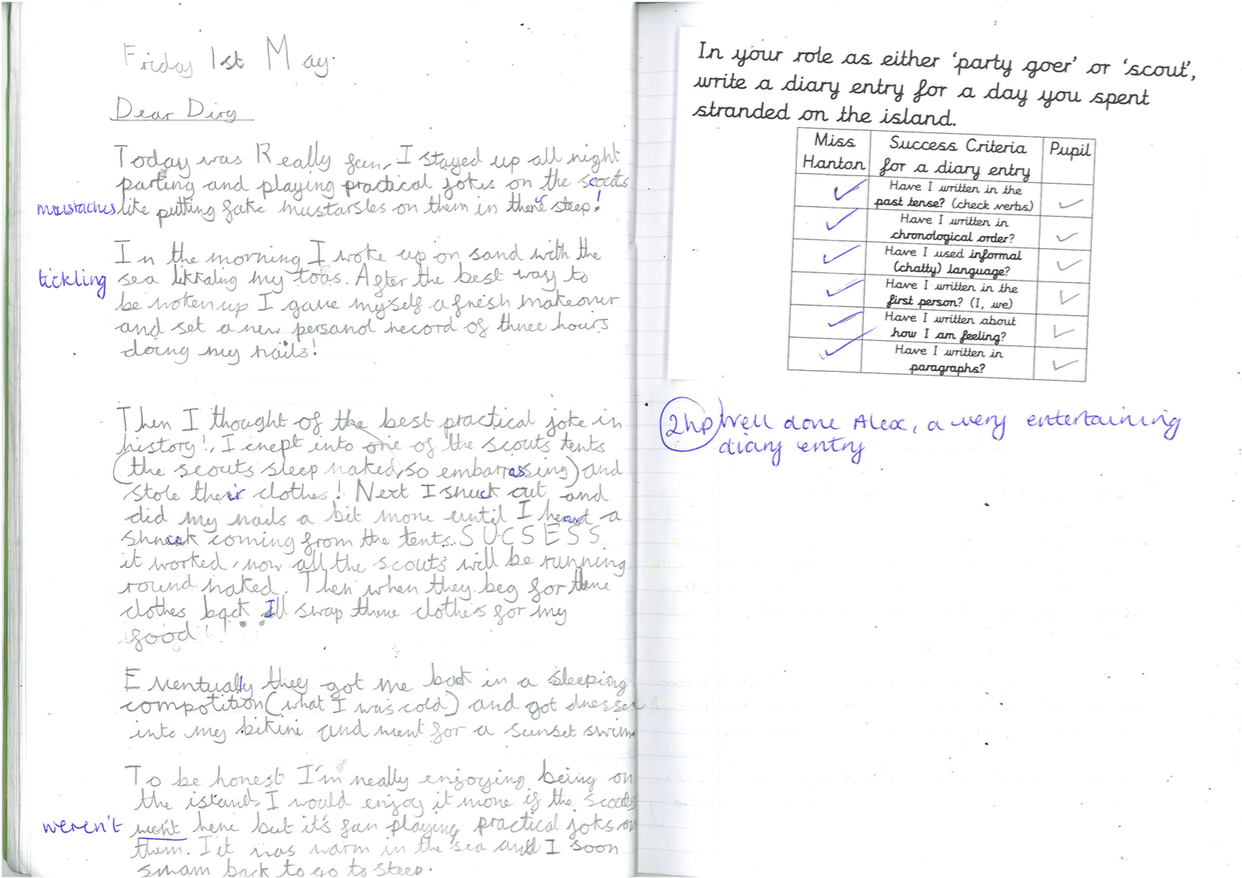 Friday 1st May.
Dear Diry
Today was Really fun, I stayed up all night
parting and playing practical jokes on the scouts
moustaches like putting fake mustarsles on them in there steep!
In the morning I woke up on sand with the
tickling sea my toas. After the best way to
be woken up I gave myself a fresh makeover
and set a new persanol record of three hours
doing my nails!
Then I thought of the best practical joke in
history!, I crept into one of the scouts tents
(the scouts sleep naked, so embarrassing) and
stole their clothes! Next I snuck out and
did my nails a bit more until I heard a
coming from the tents. SUCSESS
it worked, now all the scouts will be running
round naked. Then when they beg for there
clothes back I'll swap there clothes for my
good!
Eventually they got me back in a sleeping
compotition (what I was cold) and got dresse
into my bikini and went for a sunset swim
To be honest I'm really enjoying being on
the island. I would enjoy it more if the scouts
weren't went here but it's fun playing practical joks on
them. It was warm in the sea and I soon
swam back to go to steep.
In your role as either 'party goer' or 'scout',
write a diary entry for a day you spent
stranded on the island.
Miss Hanton
Success Criteria for a diary entry
Pupil
Have I written in the
past tense? (check verbs)
Have I written in
chronological order?
Have I used informal
(chatty) language?
Have I written in the
first person? (I, we)
Have I written about
how I am feeling?
Have I written in
paragraphs?
2hp Well done Alex, a very entertaining
diary entry